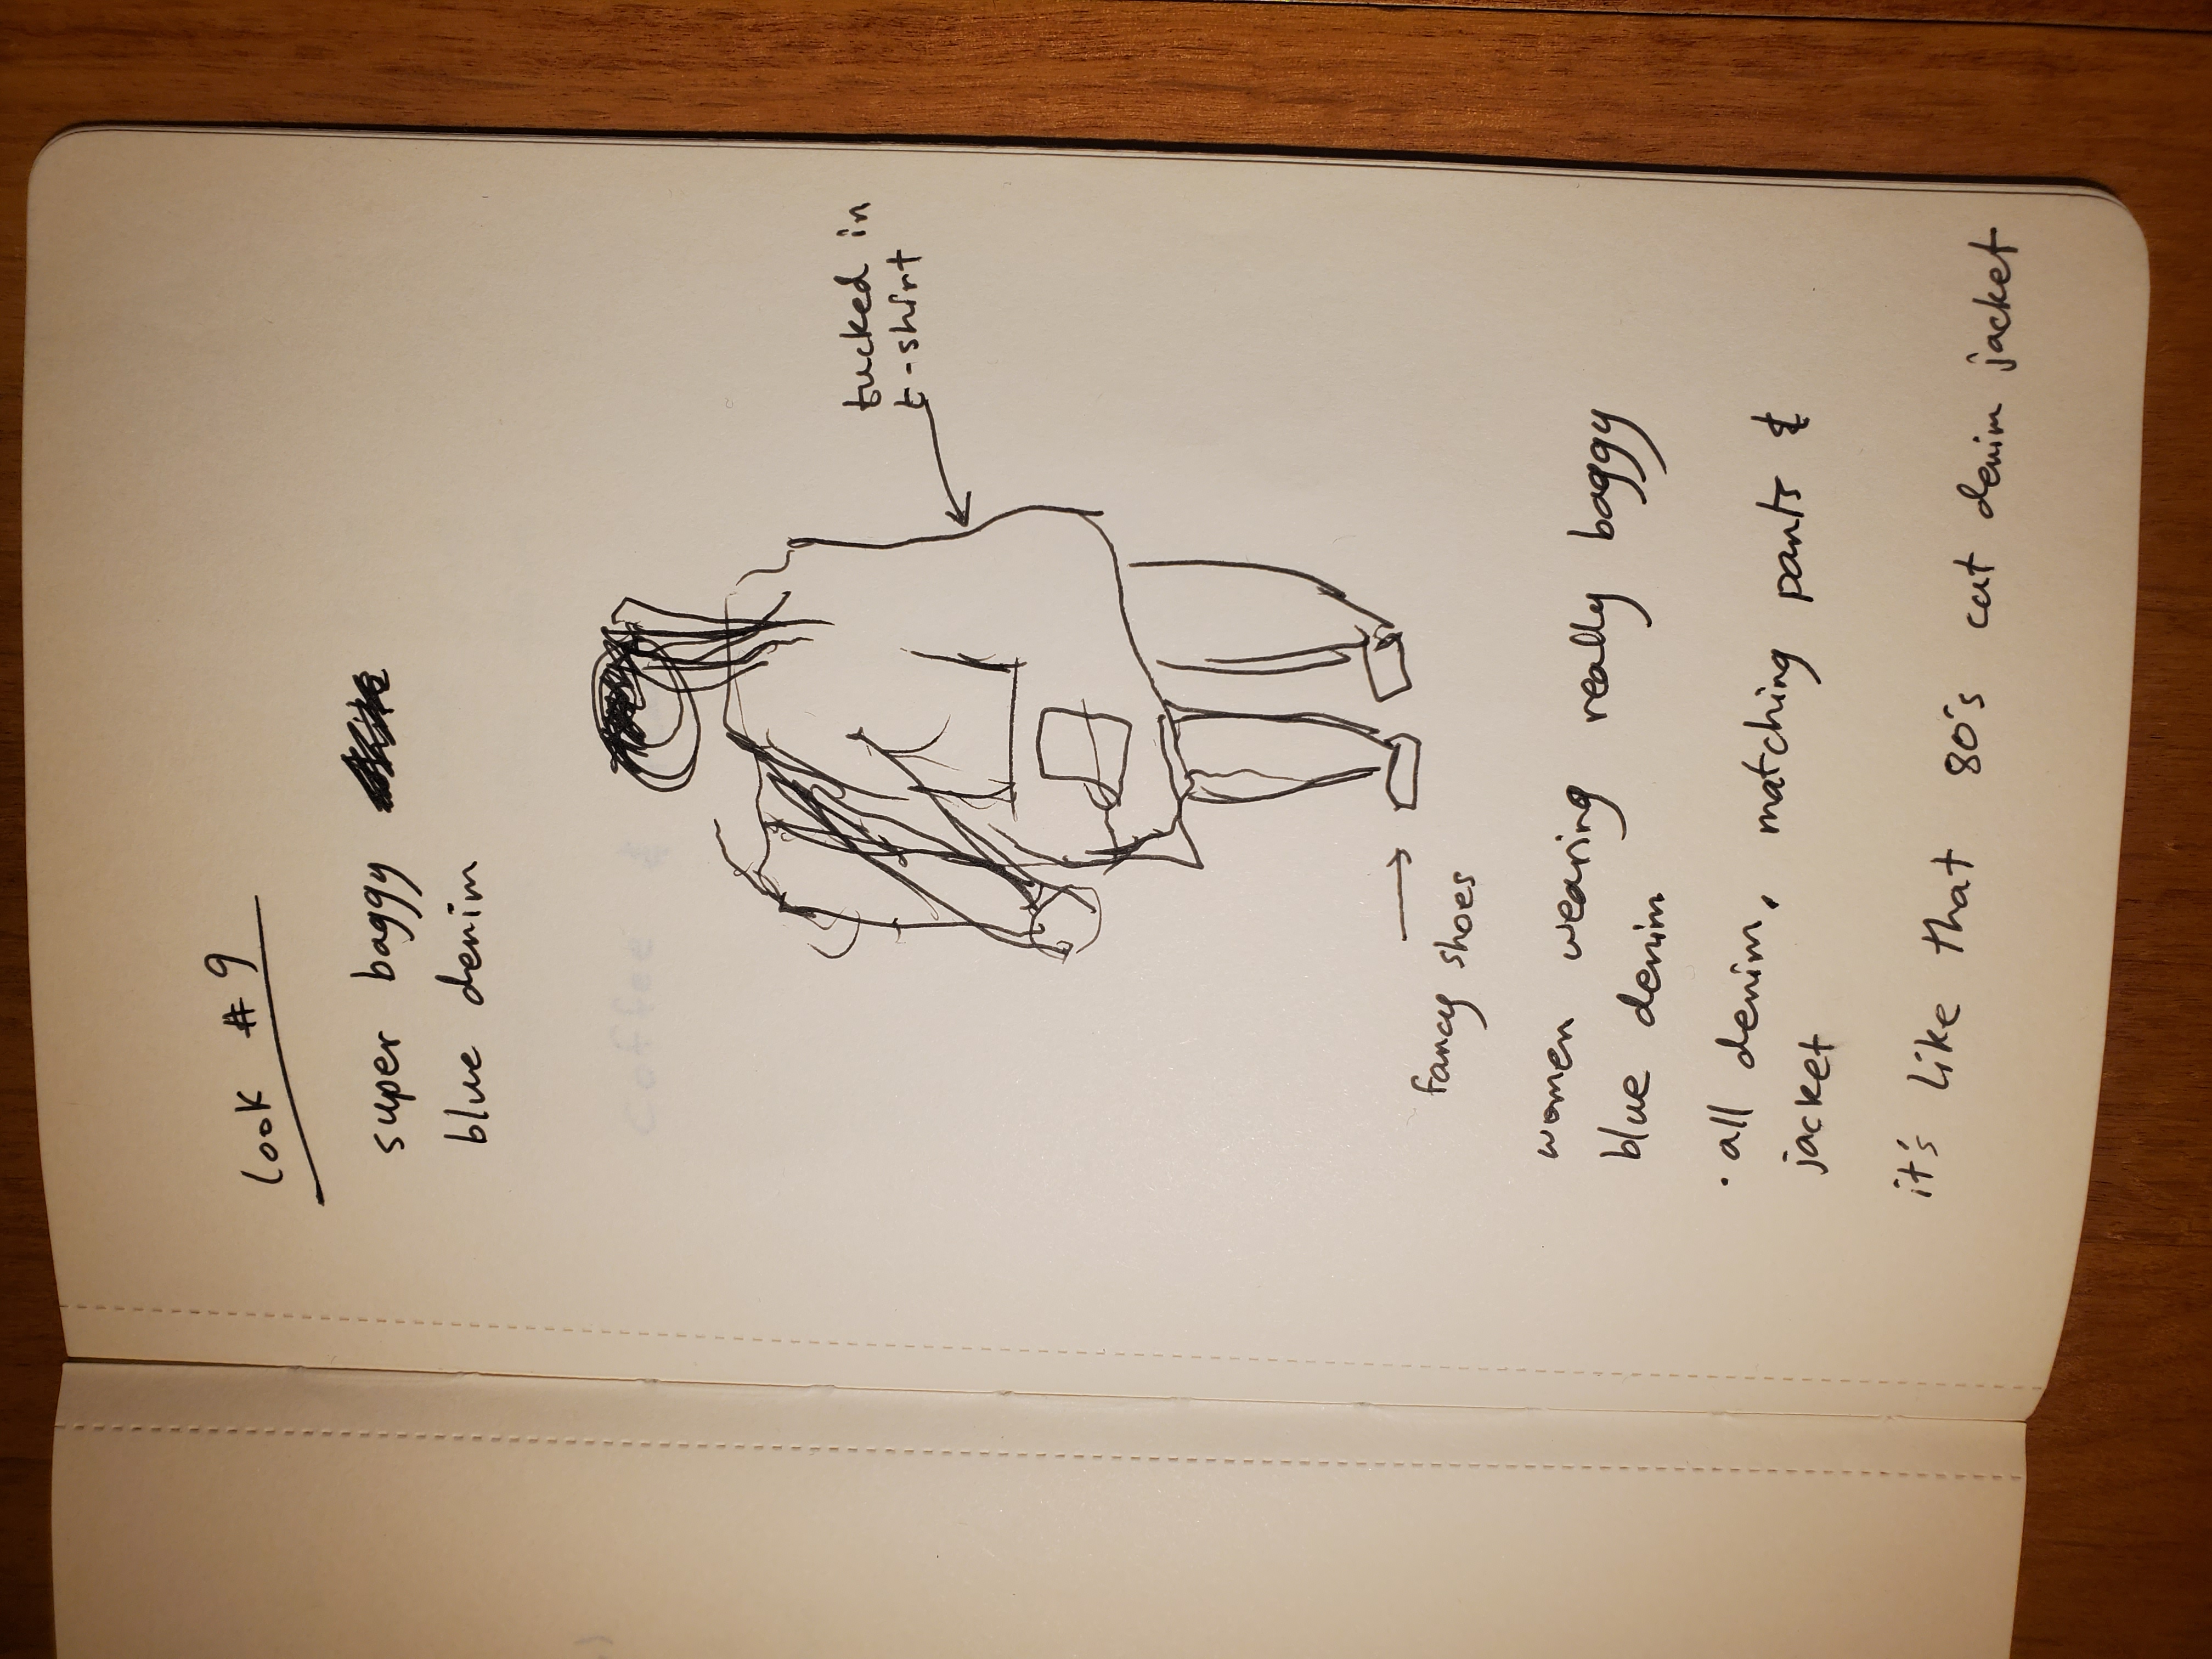 look #9
super baggy
blue denim
coffee &
tucked in
t-shirt
fancy shoes
women wearing really baggy
blue denim
· all denim, matching pants &
jacket
it's like that 80's cut denim jacket